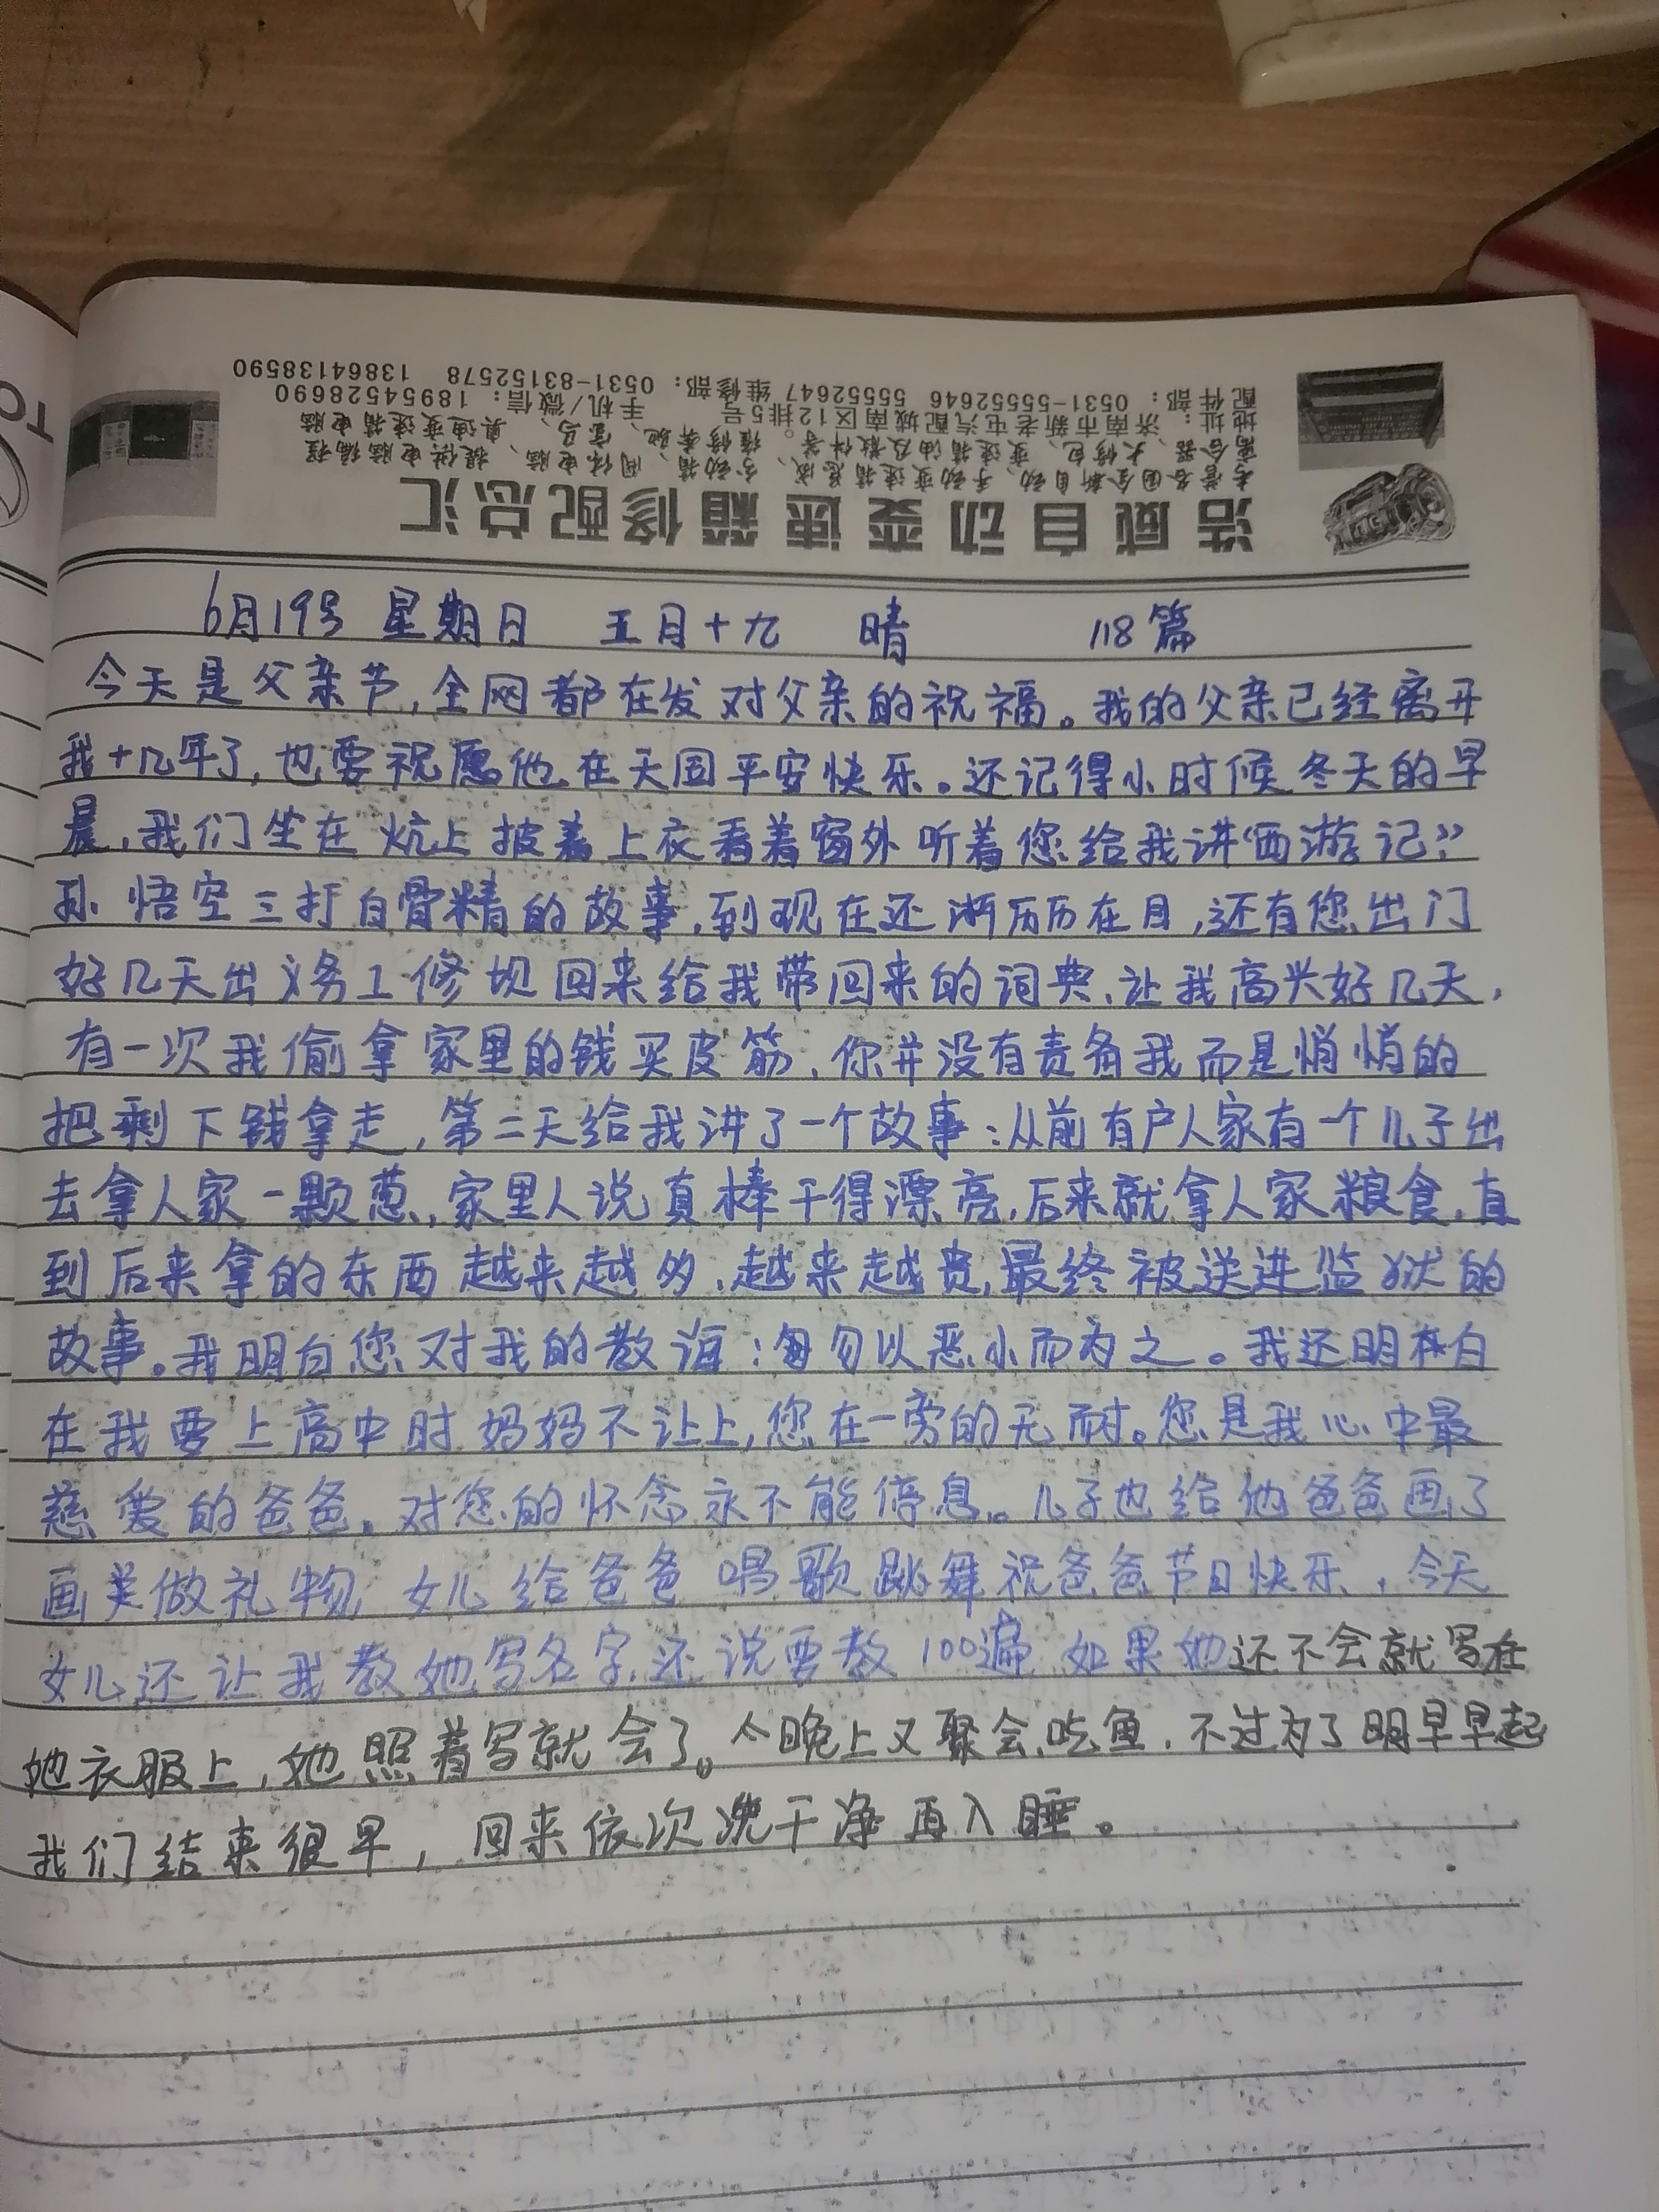 TO
配件部：0531-55552646 55552647 维修部：0531-83152578 13864138590
地址：济南市新老屯汽配城南区12排5号 手机/微信：18954528690
浩威自动变速箱修配总汇
6月19号 星期日 五月十九 晴 118篇
今天是父亲节，全网都在发对父亲的祝福。我的父亲已经离开
我十几年了，也要祝愿他在天国平安快乐。还记得小时候冬天的早
晨，我们坐在炕上披着上衣看着窗外听着您给我讲“西游记”
孙悟空三打白骨精的故事，到现在还渐历历在目，还有您出门
好几天出义务工修坝回来给我带回来的词典、让我高兴好几天，
有一次我偷拿家里的钱买皮筋、你并没有责备我而是悄悄的
把剩下钱拿走，第二天给我讲了一个故事：从前有户人家有一个儿子出
去拿人家一颗葱，家里人说真棒干得漂亮，后来就拿人家粮食，直
到后来拿的东西越来越多、越来越贵，最终被送进监狱的
故事。我明白您对我的教诲：每勿以恶小而为之。我还明白
在我要上高中时妈妈不让上，您在一旁的无耐。您是我心中最
慈爱的爸爸。对您的怀念永不能停息。儿子也给他爸爸画了
画关做礼物 女儿给爸爸唱歌跳舞祝爸爸节日快乐，今天
女儿还让我教她写名字，还说要教100遍 如果她还不会就写在
她衣服上，她照着写就会了。今晚上又聚会吃鱼，不过为了明早早起
我们结束很早，回来依次洗干净再入睡。